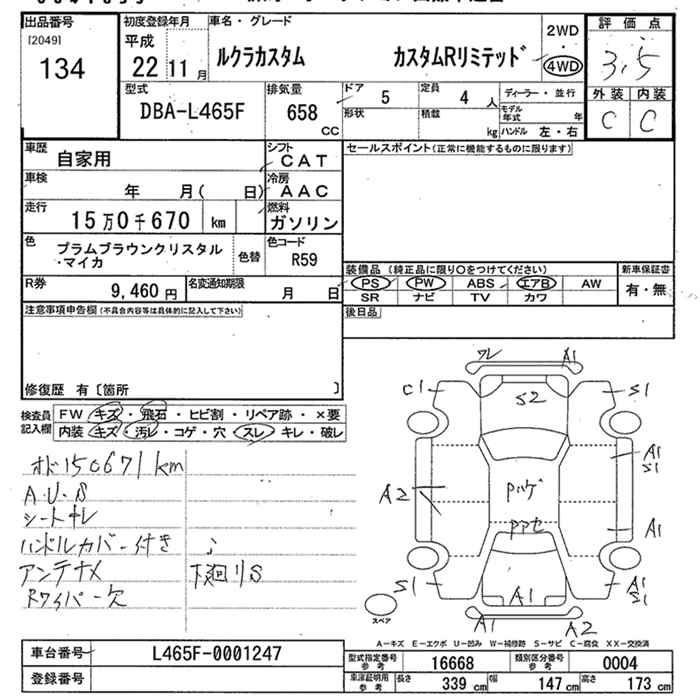 出品番号
[2049]
134
初度登録年月
平成
22 11 月
車名・グレード
ルクラカスタム カスタムRリミテッド
2WD
・
4WD
評価点
3.5
外装 内装
C C
型式
DBA-L465F
排気量
658 CC
ドア
5
定員
4 人
形状
積載
kg
ディーラー・並行
モデル年式 年
ハンドル 左・右
車歴
自家用
シフト
CAT
車検
年 月( 日)
冷房
AAC
走行
15万0千670 km
燃料
ガソリン
色
プラムブラウンクリスタル
・マイカ
色替
色コード
R59
R券
9,460 円
名変通知期限
月 日
セールスポイント(正常に機能するものに限ります)
装備品 (純正品に限り○をつけてください)
PS PW ABS エアB AW
SR ナビ TV カワ
新車保証書
有・無
後日品
注意事項申告欄(不具合内容等は具体的に記入して下さい)
修復歴 有〔箇所 〕
検査員
記入欄
FW キズ・飛石・ヒビ割・リペア跡・×要
内装 キズ・汚レ・コゲ・穴 スレ キレ・破レ
オド150671km
A.U.S
シートキレ
ハンドルカバー付き
アンテナメ
下廻りS
Rワイパー欠
ワレ A1
C1 S2 S1
A1
S1
A2
Pハゲ
A1
PアセA1
S1
S1
A1
A1 A2
スペア
A－キズ E－エクボ U－凹み W－補修跡 S－サビ C－腐食 XX－交換済
車台番号
L465F-0001247
登録番号
型式指定番号
参考
16668
類別区分番号
参考
0004
車庫証明用
参考
長さ 339 cm 幅 147 cm 高さ 173 cm